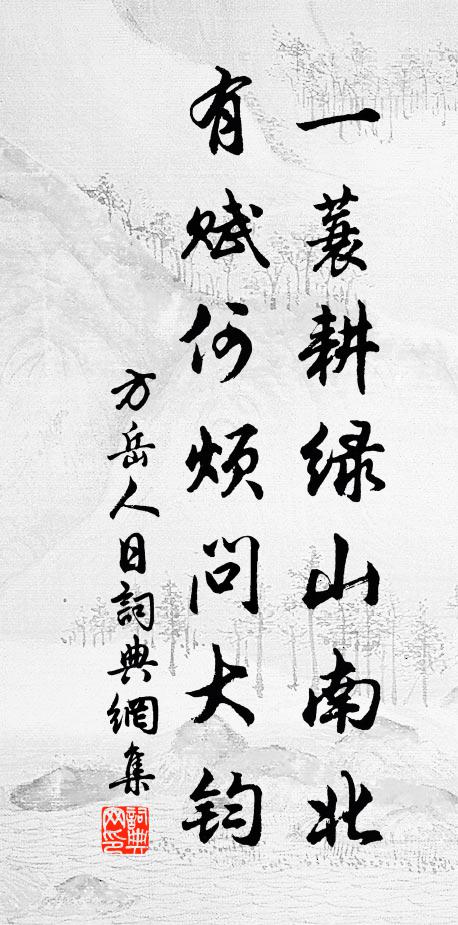 一蓑耕绿山南北
有赋何烦问大钧
方岳人日詞典網集
詞典网印